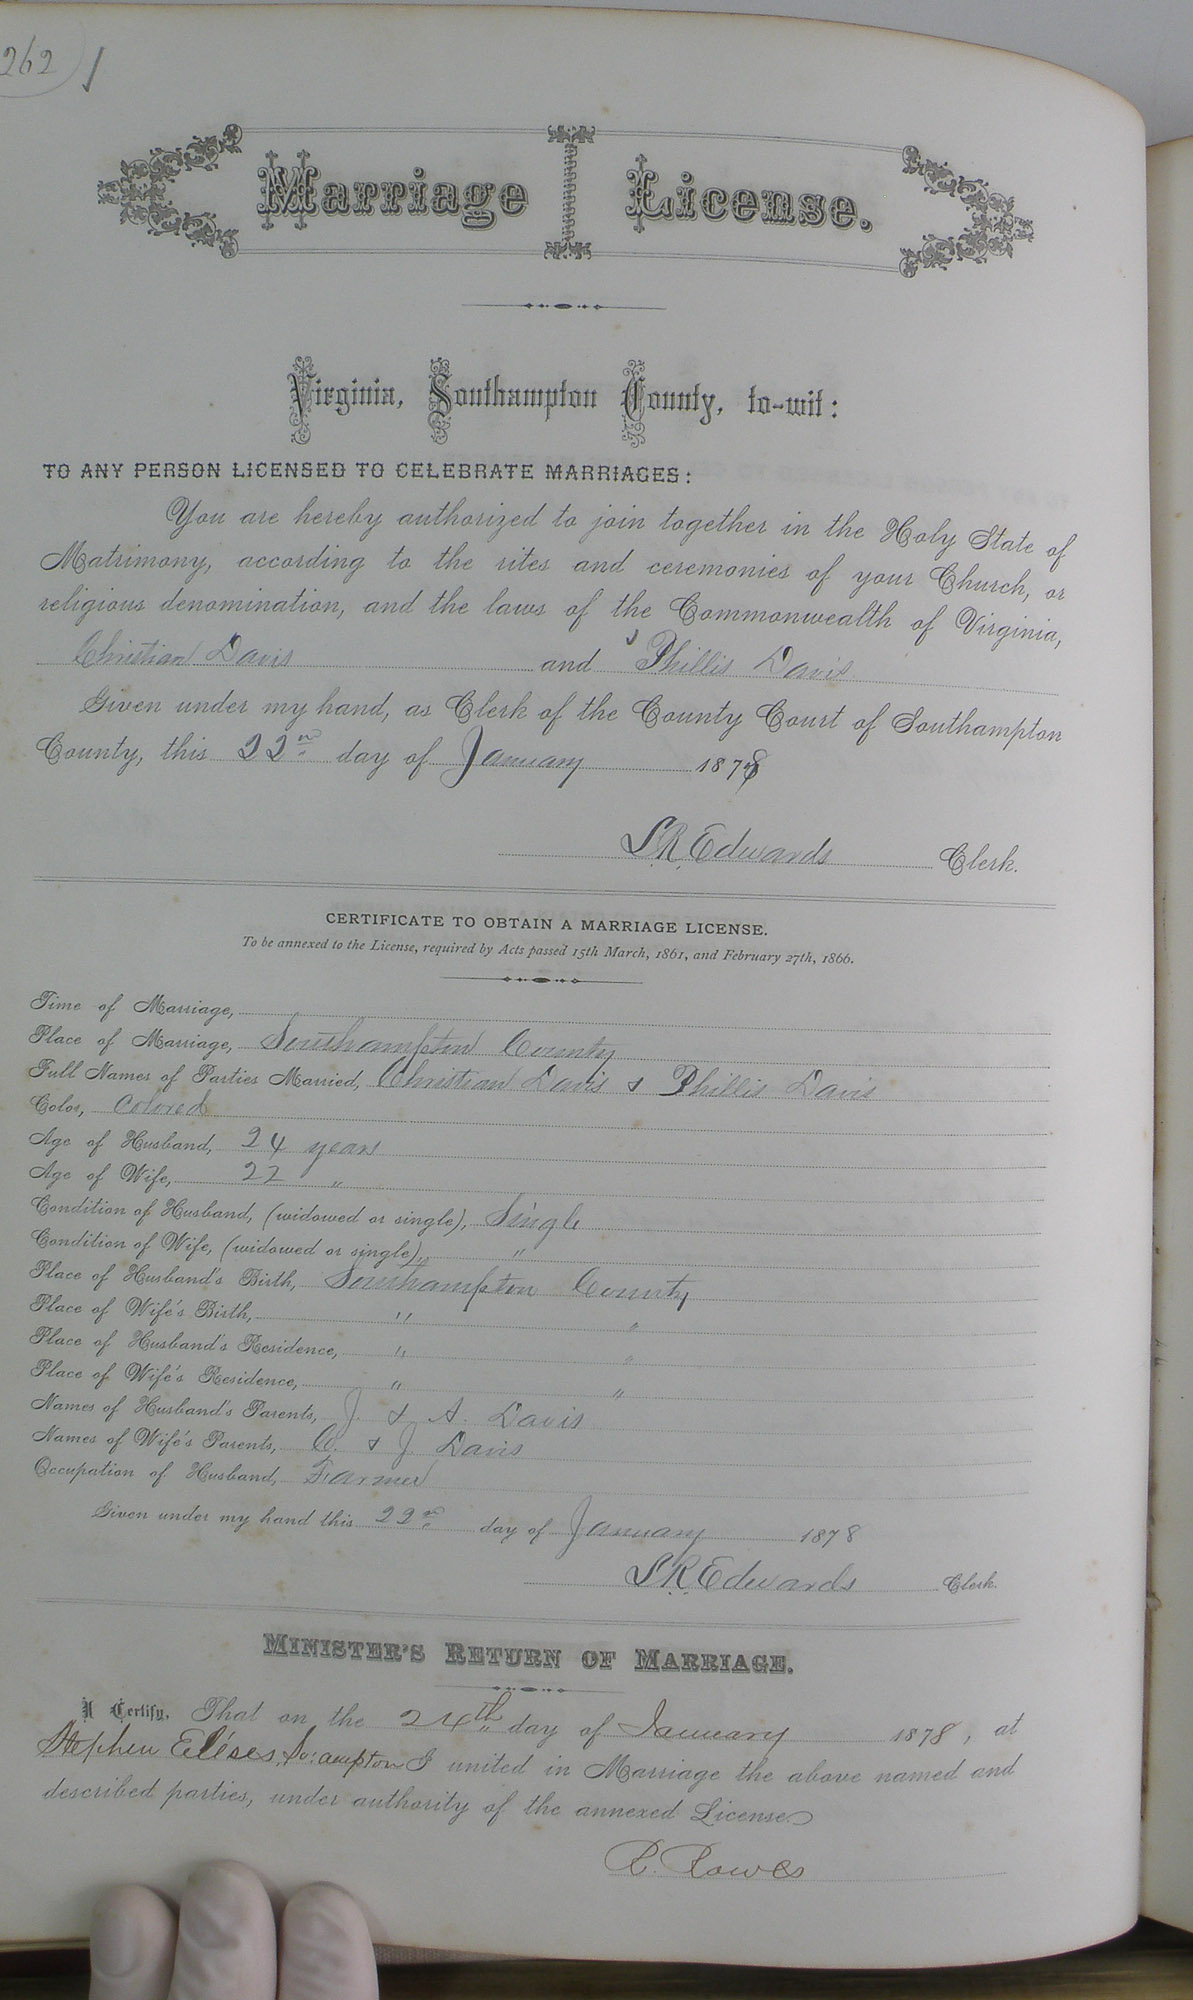 262
Marriage License.
Virginia, Southampton County, to-wit:
TO ANY PERSON LICENSED TO CELEBRATE MARRIAGES:
You are hereby authorized to join together in the Holy State of
Matrimony, according to the rites and ceremonies of your Church, or
religious denomination, and the laws of the Commonwealth of Virginia,
Christian Davis and Phillis Davis
Given under my hand, as Clerk of the County Court of Southampton
County, this 22nd day of January 1878
S.R. Edwards Clerk.
CERTIFICATE TO OBTAIN A MARRIAGE LICENSE.
To be annexed to the License, required by Acts passed 15th March, 1861, and February 27th, 1866.
Time of Marriage,
Place of Marriage, Southampton County
Full Names of Parties Married, Christian Davis & Phillis Davis
Color, Colored
Age of Husband, 24 years
Age of Wife, 22 "
Condition of Husband, (widowed or single), Single
Condition of Wife, (widowed or single), "
Place of Husband's Birth, Southampton County
Place of Wife's Birth, " "
Place of Husband's Residence, " "
Place of Wife's Residence, " "
Names of Husband's Parents, J. & A. Davis
Names of Wife's Parents, C. & J. Davis
Occupation of Husband, Farmer
Given under my hand this 22nd day of January 1878
S.R. Edwards Clerk.
MINISTER'S RETURN OF MARRIAGE.
I Certify, That on the 24th day of January 1878, at
Stephen I united in Marriage the above named and
described parties, under authority of the annexed License.
R. Rowes